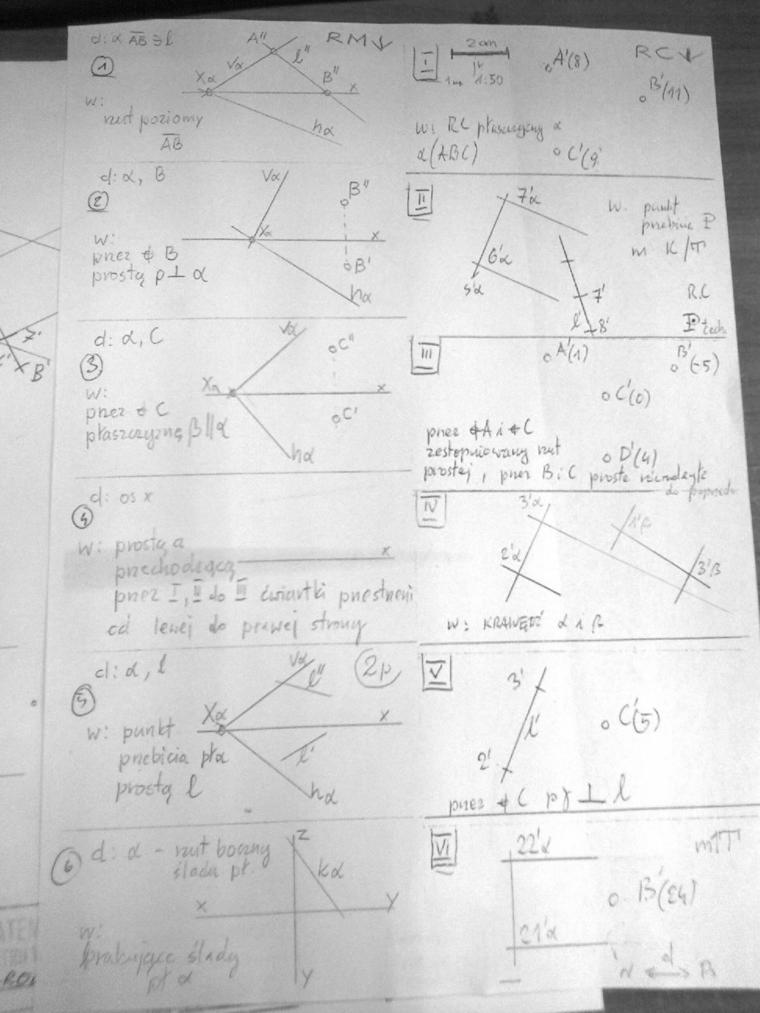 d: α AB ∋ l
RM↓
①
A''
Vα
l''
Xα
B''
x
w:
rzut poziomy
AB
hα
d: α, B
②
Vα
B''
Xα
x
w:
przez ¢ B
prostą p ⊥ α
B'
hα
d: α, C
③
Vα
C''
Xα
x
w:
przez ¢ C
płaszczyznę β || α
C'
hα
d: oś x
④
w: prostą a
przechodzącą
x
przez I, II do III ćwiartki przestrzeni
od lewej do prawej strony
d: α, l
2p
⑤
Vα
l''
Xα
x
w: punkt
przebicia płα
prostą l
l'
hα
⑥ d: α - rzut boczny
śladu pł.
z
kα
x
y
w:
brakujące ślady
pł α
y
I
2cm
1:50
A'(8)
RC↓
B'(11)
w: RC płaszczyzny α
α(ABC)
C'(9
II
7'α
w. punkt
przebicia P
m K/T
6'α
5'α
7'
l'
8'
RC
P
III
A'(1)
B'(-5)
C'(0)
przez ¢A i ¢C
zestopniowany rzut
prostej, przez B i C proste
D'(4)
IV
3'α
1'β
2'α
3'β
w: KRAWĘDŹ α i β
V
3'
l'
C'(5)
2'
przez ¢ C pγ ⊥ l
VI
22'α
B'(24)
21'α
d
B